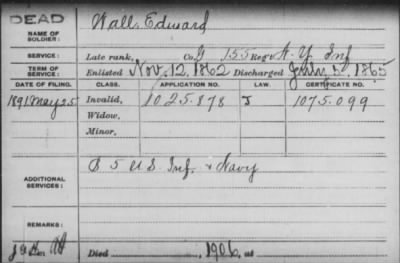 DEAD
NAME OF SOLDIER: Wall, Edward
SERVICE: Late rank, Co. G 155 Reg't N.Y. Inf
TERM OF SERVICE: Enlisted Nov. 12, 1862 Discharged 1865
DATE OF FILING. CLASS. APPLICATION NO. LAW. CERTIFICATE NO.
1891 May 25 Invalid, 1025.878 J 1075.099
Widow,
Minor,
ADDITIONAL SERVICES: B 5 U S Inf. & Navy
REMARKS:
Died 1906, at